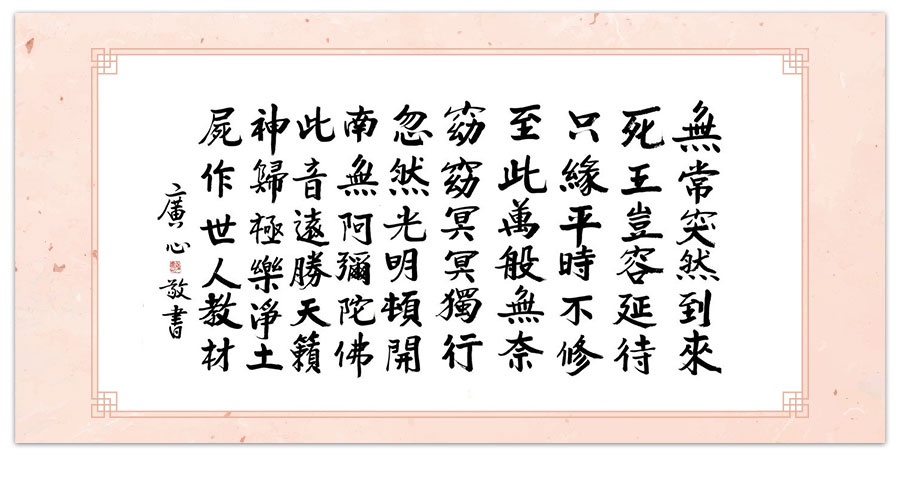 無常突然到來
死王豈容延待
只緣平時不修
至此萬般無奈
窈窈冥冥獨行
忽然光明頓開
南無阿彌陀佛
此音遠勝天籟
神歸極樂淨土
屍作世人教材
廣心 敬書